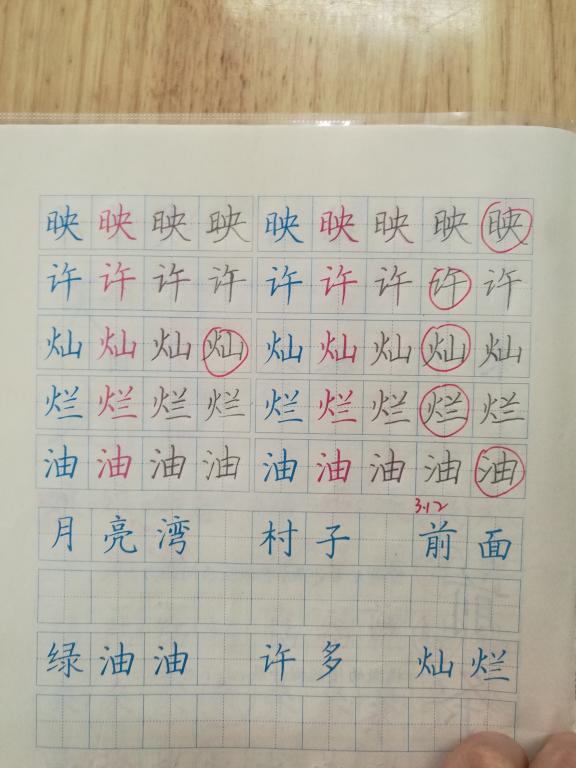 映映映映 映映映映映
许许许许 许许许许许
灿灿灿灿 灿灿灿灿灿
烂烂烂烂 烂烂烂烂烂
油油油油 油油油油油
3.12
月亮湾 村子 前面
绿油油 许多 灿烂